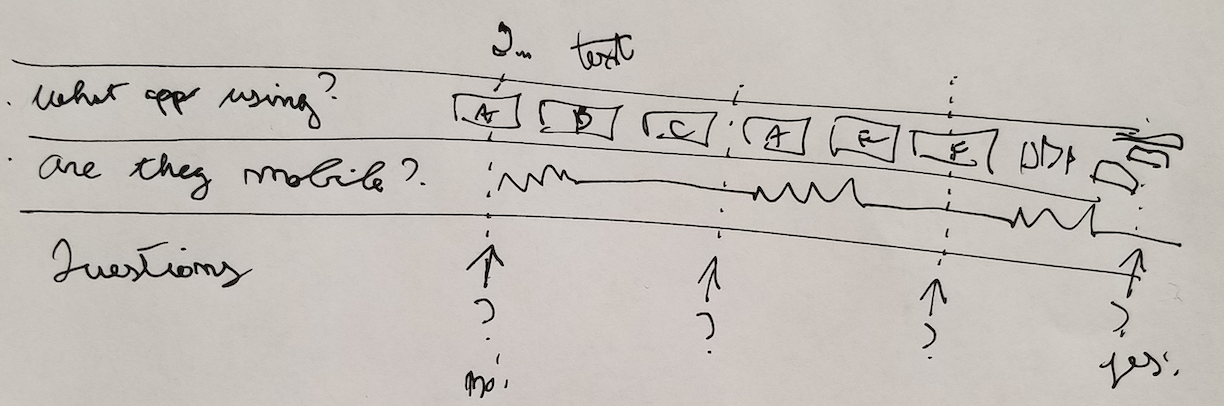 text
What app using?
A B C A E F
Are they mobile?
Questions
? ? ? ?
no: yes: